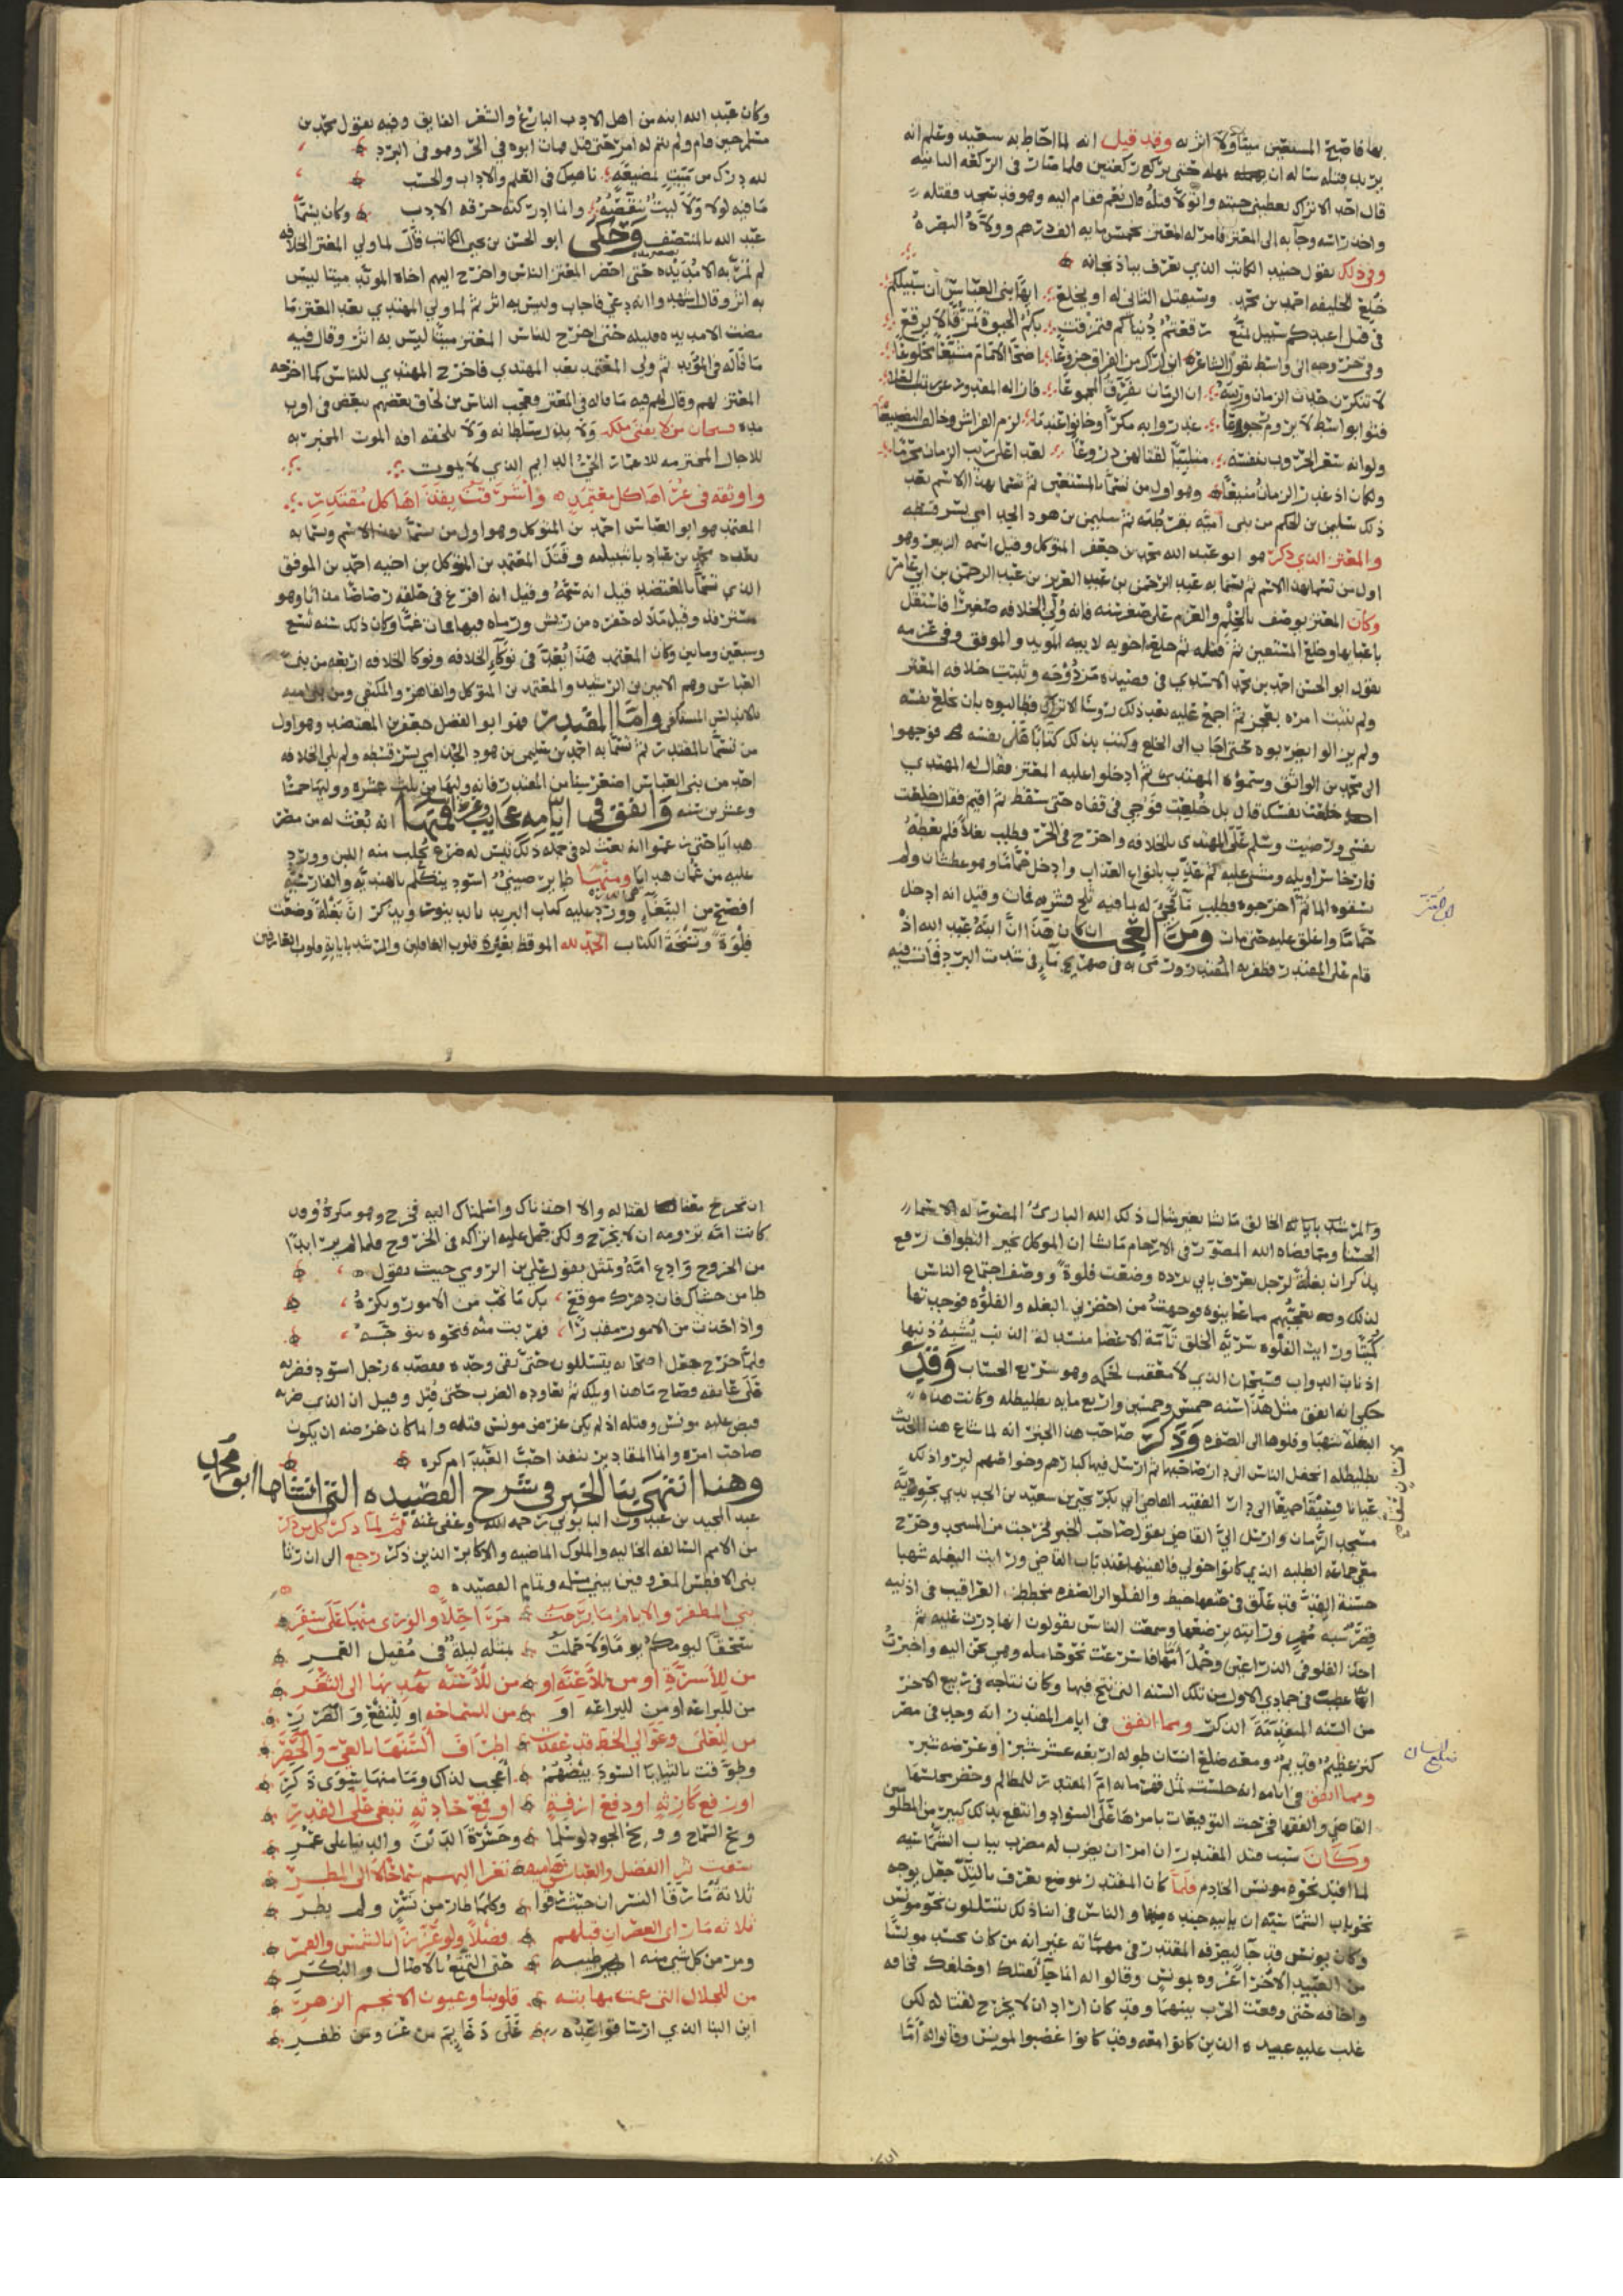 بها فاصبح المستعين ميتا ولا اثر به وقد قيل انه لما احاط به سعيد وعلم انه
يريد قتله ساله ان يمهله حتى يركع ركعتين فلما صار فى الركعه الثانيه
قال احد الاتراك يعطينى جبته واتولا قتله قال نعم فقام اليه وهو قد سجد فقتله
واخذ راسه وجا به الى المعتز فامر له المعتز بخمس مايه الف درهم وولاه البصره
وفي ذلك يقول حبيب الكاتب الذي يعرف بباذنجانه
خلع الخليفه احمد بن محمد وسيقتل الثانى له او يخلع ايها بنى العباس ان سبيلكم
فى قتل اعبدكم سبيل مهيع رقعتم دنياكم فتمزقت بكم الحيوة تمزقا لا يرقع
وفى خروجه الى واسط يقول الشاعر انى اراك من الفراق جزوعا اضحا الامام مشيعا مخلوعا
لا تنكرن حدثان الزمان وريبه ان الزمان يفرق المجموعا
ولو انه سعر الحروب بنفسه متلببا لقتالهن دروعا
ولكان اذ غدر الزمان منيعا وهو اول من تسما بالمستعين ثم تسما بهذا الاسم بعد
ذلك سليمن بن الحكم من بنى اميه بقرطبه ثم سليمن بن هود الجد امى بسرقسطه
والمعتز الذي ذكر هو ابو عبد الله محمد بن جعفر المتوكل وقيل اسمه الزبير وهو
اول من تسما بهذا الاسم ثم تسما به عبد الرحمن بن عبد العزيز بن عبد الرحمن بن ابي عامر
وكان المعتز يوصف بالحلم والعزم على صغر سنه فانه ولى الخلافه صغيرا فاستقل
باعبايها وخلع المستعين ثم قتله ثم خلع اخويه لابيه المويد والموفق وفى عزمه
يقول ابو الحسن احمد بن محمد الاسدي فى قصيده مزدوجه وثبتت خلافه المعتز
ولم يثبت امره بعجز ثم اجمع عليه بعد ذلك روسا الاتراك فطالبوه بان يخلع نفسه
ولم يزالوا يضربوه حتى اجاب الى الخلع وكتب بذلك كتابا على نفسه فوجهوا
الى محمد بن الواثق وسموه المهتدى ثم ادخلوا عليه المعتز فقال له المهتدي
خلعت نفسك قال بل خلعت فوجي فى قفاه حتى سقط ثم اقيم فقال خلعت
نفسي ورضيت وسلم على المهتدى بالخلافه واخرج فى الحر وطلب نعلا فلم يعطه
فارخا سراويله ومشى عليه ثم عذب بانواع العذاب وادخل حماما وهو عطشان ولم
يسقوه الما ثم اخرجوه فطلب ما فجى له بما فيه ثلج فشربه فمات وقيل انه ادخل
حماما واغلق عليه حتى مات ومن العجب ان كان هذا ان ابنه عبد الله اذ
قام على المقتدر فظفر به المقتدر ورمى به فى صهريج ماء فى شدت البرد فمات فيه
وكان عبد الله ابنه من اهل الادب البارع والشعر الفايق وفيه يقول محمد بن
حين قام ولم يتم له امر حتى قتل مات ابوه فى الحر وهو فى البرد
لله درك من ميت بمضيعه ناهيك فى العلم والاداب والحسب
ما فيه لولا ولا ليت تنقصه وانما ادركته حرفه الادب وكان يسما
عبد الله بالمنتصف وحكى ابو الحسن بن يحيى الكاتب قال لما ولي المعتز الخلافه
لم تمر به الا مديده حتى احضر المعتز الناس واخرج اليهم اخاه المويد ميتا ليس
به اثر وقال اشهدوا انه دعى فاجاب وليس به اثر ثم لما ولي المهتدي بعد المعتز ما
مضت الا مديده قليله حتى اخرج للناس المعتز ميتا ليس به اثر وقال فيه
ما قاله فى المؤيد ثم ولى المعتمد بعد المهتدي فاخرج المهتدي للناس كما اخرجه
المعتز لهم وقال لهم فيه ما قاله فى المعتز وتعجب الناس من لحاق بعضهم ببعض فى اقرب
مده فسبحان من لا يفنى ملكه ولا يذل سلطانه ولا تلحقه افه الموت المخبر به
للاجال المخترمه للاعمار الحى الدايم الذي لا يموت
واوثقه فى عراها كل معتمد واشرقت بقذاها كل مقتدر
المعتمد هو ابو العباس احمد بن المتوكل وهو اول من تسما بهذا الاسم وتسما به
بعده محمد بن عباد باشبيليه وقتل المعتمد بن المتوكل بن اخيه احمد بن الموفق
الذي تسما بالمعتضد قيل انه سمه وقيل انه افرغ فى حلقه رصاصا مذابا وهو
سنه تسع
وسبعين ومايتين وكان المعتمد هذا بعد فى نوكاء الخلافه ونوكا الخلافه اربعه من بنى
العباس وهم الامين بن الرشيد والمعتمد بن المتوكل والقاهر والمكتفي ومن بنى اميه
بالاندلس المستكفى واما المقتدر فهو ابو الفضل جعفر بن المعتضد وهو اول
من تسما بالمقتدر ثم تسما به احمد بن سليمن بن هود الجد امى بسرقسطه ولم يلي الخلافه
احد من بنى العباس اصغر سنا من المقتدر فانه وليها بن ثلث عشره ووليها خمسا
وعشرين سنه واتفق فى ايامه عجايب وغرايب فمنها انه بعث له من مصر
هدايا حتى منها انه بعث له فى جمله ذلك تيس له ضرع يحلب منه اللبن وورد
عليه من عمان هدايا ومنها طاير صينى اسود يتكلم بالهنديه والفارسيه
افصح من الببغا وورد عليه كتاب البريد بالدينور ويذكر ان بغلة وضعت
فلوة ونسخة الكتاب الحمد لله الموقظ بغيره قلوب الغافلين والمرشد باياته قلوب العارفين
والمرشد باياته الخالق ما يشا بغير مثال ذلك الله البارئ المصور له الاسما
الحسنا ومما قضاه الله المصور فى الارحام ما يشا ان الموكل بخبر التطواف رفع
يذكر ان بغلة لرجل يعرف بابي برده وضعت فلوة ووصف اجتماع الناس
لذلك وتعجبهم مما عاينوه فوجهت من احضرنى البغله والفلوه فوجدتها
كميتا ورايت الفلوه سرية الخلق تامة الاعضا منسدلة الذنب يشبه ذنبها
اذناب الدواب فسبحان الذي لا معقب لحكمه وهو سريع الحساب وقد
حكى انه اتفق مثل هذا سنه خمس وخمسين واربع مايه بطليطله وكانت هذه
البغلة شهبا وفلوها الى الصفره وذكر صاحب هذا الخبر انه لما شاع هذا الحديث
بطليطله انحفل الناس الى دار صاحبها ثم ارسل فيها كبارهم وخواصهم ليروا ذلك
عيانا الى دار الفقيه القاضى ابى بكر يحيى بن سعيد بن الحديدي بحومة
مسجد الرمان وارسل الي القاضى يقول صاحب الخبر فخرجت من المسجد وخرج
معى جماعه الطلبه الذي كانوا حولي فالفيتها عند باب القاضى ورايت البغله شهبا
حسنة الهيئة قد علق فى عنقها خيط والفلو الى الصفره مخطط العراقيب فى اذنيه
قصر شبه مهر ورايته يرضعها وسمعت الناس يقولون انها درت عليه ثم
اخذ الفلو فى الذراعين وحمل امامها فاسرعت نحو حامله وهى تحن اليه واخبرت
انها فى جمادي الاول من تلك السنه التى نتج فيها وكان نتاجه فى ربيع الاخر
من السنه المتقدمة الذكر ومما اتفق فى ايام المقتدر انه وجد فى مصر
كنز عظيم قديم ومعه ضلع انسان طوله اربعه عشر شبرا وعرضه شبر
ومما اتفق فى ايامه انه جلست ثمل قهرمانه ام المقتدر للمظالم وحضر مجلسها
القاضى والفقها فخرجت التوقيعات بامرها على السواد وانتفع بذلك كبير من المظلومين
وكان سبب قتل المقتدر ان امر ان يضرب له مضرب بباب الشماسيه
لما اقبل نحوه مونس الخادم فلما كان المقتدر بموضع يعرف بالتل جعل يوجه
نحو باب الشماسيه ان ياتيه جنده منها والناس فى اثنا ذلك يتسللون نحو مونس
وكان يونس قد جا ليصرفه المقتدر فى مهماته غير انه من كان يحسد مونسا
من العبيد الاخر اغروه بيونس وقالوا له انما جا لقتلك او خلعك فخافه
واخافه حتى وقعت الحرب بينهما وقد كان اراد ان لا يخرج لقتاله لكن
غلب عليه عبيده الذين كانوا معه وقد كانوا غضبوا لمونس وقالوا له اما
ضلع انسان
ان تخرج معنا لقتاله والا اخذناك واسلمناك اليه فخرج وهو مكره وقد
كانت امه تزومه ان لا يخرج ولكن حمل عليه اتراكه فى الخروج فلما لم ير بدا
من الخروج وادع امه وتمثل بقول علي بن الرومي حيث يقول
طامن حشاك فان دهرك موقع بك ما تحب من الامور وتكره
واذا حذرت من الامور مقدرا فهربت منه فنحوه تتوجه
ولما خرج جعل اصحابه يتسللون حتى بقى وحده فقصده رجل اسود فضربه
على عاتقه فصاح ما هذا ويلك ثم عاوده الضرب حتى قتل وقيل ان الذى ضربه
قبض عليه مونس وقتله اذ لم يكن غرض مونس قتله وانما كان غرضه ان يكون
صاحب امره وانما المقادير تنفذ احب العبد ام كره
وهنا انتهى بنا الخبر فى شرح القصيده التى انشاها ابو محمد
عبد المجيد بن عبدون اليابوري رحمه الله وعفى عنه ثم لما ذكر كل من ذكر
من الامم السالفه الخاليه والملوك الماضيه والاكابر الذين ذكر رجع الى ان رثا
بنى الافطس المعروفين ببنى مسلمه وتمام القصيده
بنى المظفر والايام ما برحت مراحلا والورى منها على سفر
سحقا ليومكم يوما ولا حملت بمثله ليلة فى مقبل العمر
من للاسرة او من للاعنة او من للاسنة يهديها الى الثغر
من للبراعه او من لليراعه او من للسماحه او للنفع والضرر
من للعلى وعوالي الخط قد عقدت اطراف السنها بالعى والحصر
وطوقت بالثنايا السود بيضهم اعجب لذاك وما منها سوى ذكر
او رفع كارثه او دفع ازفة او قمع حادثه تبغى على القدر
ويح السماح وويح الجود لو سلما وحسرة الدين والدنيا على عمر
سقت ثرى الفضل والعباس هاميه تعزا اليهم سماحا لا الى المطر
ثلاثة ما رقا النسران حيث رقوا وكلما طار من نسر ولم يطر
ثلاثه ما راى العصران قبلهم فضلا ولو عززا بالشمس والقمر
ومر من كل شي منه اطيبه حتى التمتع بالاصال والبكر
من للجلال التى عمت مهابته قلوبنا وعيون الانجم الزهر
اين البنا الذي ارسا قواعده على دعايم من عز ومن ظفر